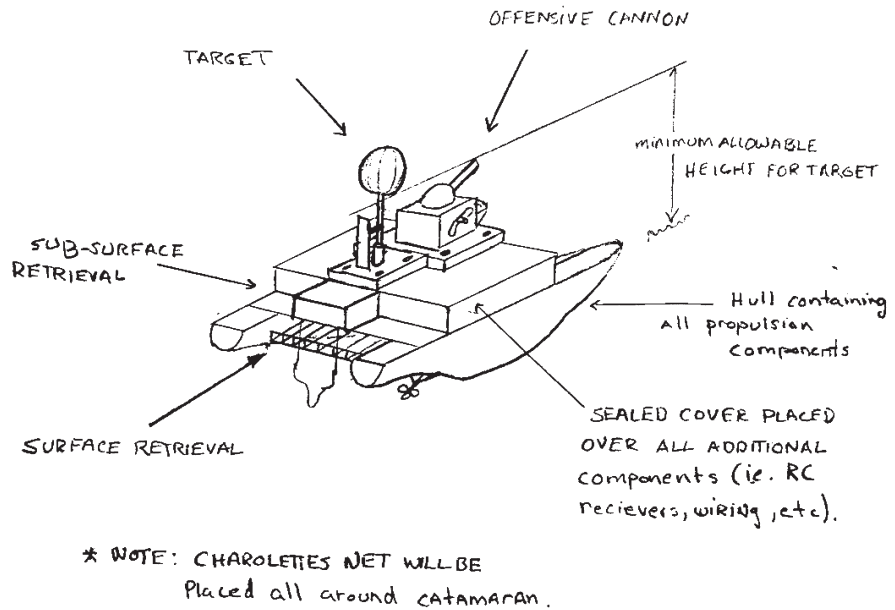 OFFENSIVE CANNON
TARGET
minimum ALLOWABLE
HEIGHT FOR TARGET
SUB-SURFACE
RETRIEVAL
Hull containing
All propulsion
components
SURFACE RETRIEVAL
SEALED COVER PLACED
OVER ALL ADDITIONAL
components (ie. RC
recievers, wiring, etc).
* NOTE: CHAROLETTES NET WILL BE
Placed all around CATAMARAN.